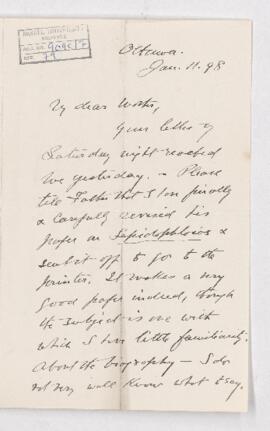 Ottawa.
Jan. 11. 98
My dear
Your letter of
Saturday night reached
me yesterday. - Please
tell Father that I have finally
& carefully revised his
paper on &
sent it off to go to the
printer. It makes a very
good paper indeed, though
the subject is one with
which I have little familiarity.
About the biography - I do
not very well know what to say.